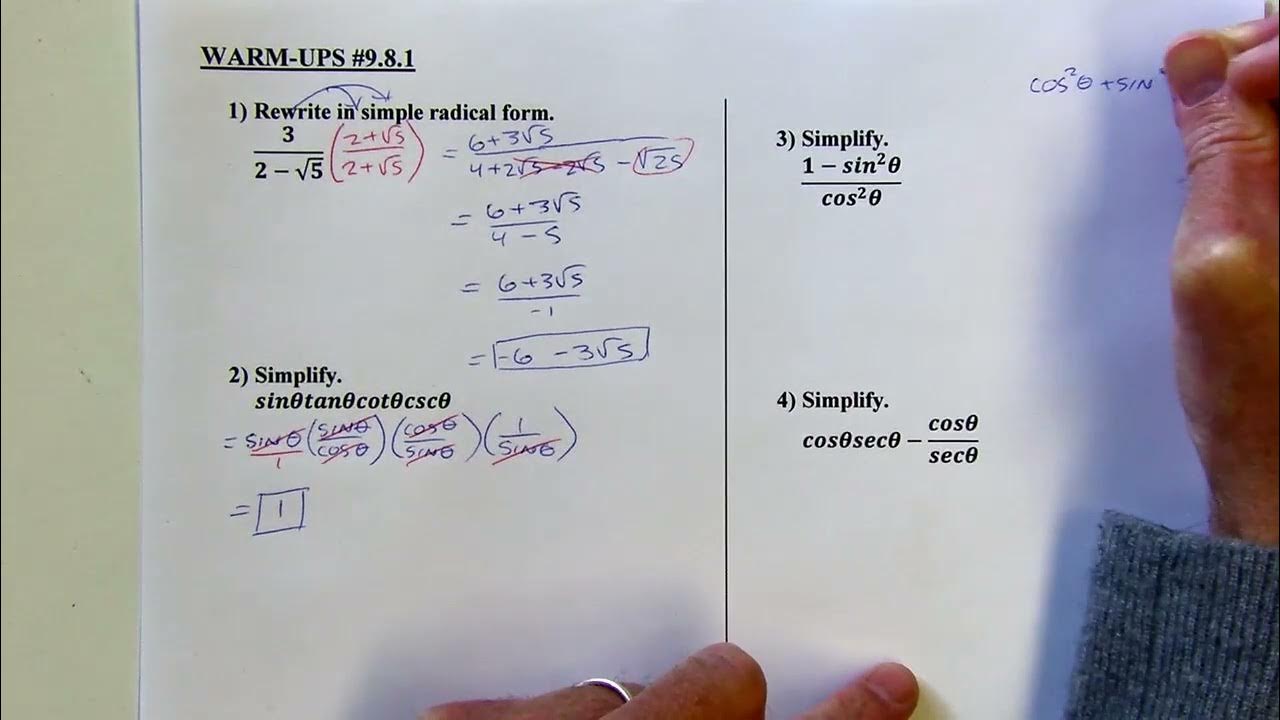 WARM-UPS #9.8.1
1) Rewrite in simple radical form.
3/(2 − √5) ((2+√5)/(2+√5)) = (6+3√5)/(4+2√5−2√5 −√25)
= (6+3√5)/(4−5)
= (6+3√5)/-1
= -6 −3√5
2) Simplify.
sinθtanθcotθcscθ
= SINθ/1 (SINθ/COSθ)(COSθ/SINθ)(1/SINθ)
= 1
COS²θ + SIN
3) Simplify.
(1 − sin²θ)/cos²θ
4) Simplify.
cosθsecθ − cosθ/secθ